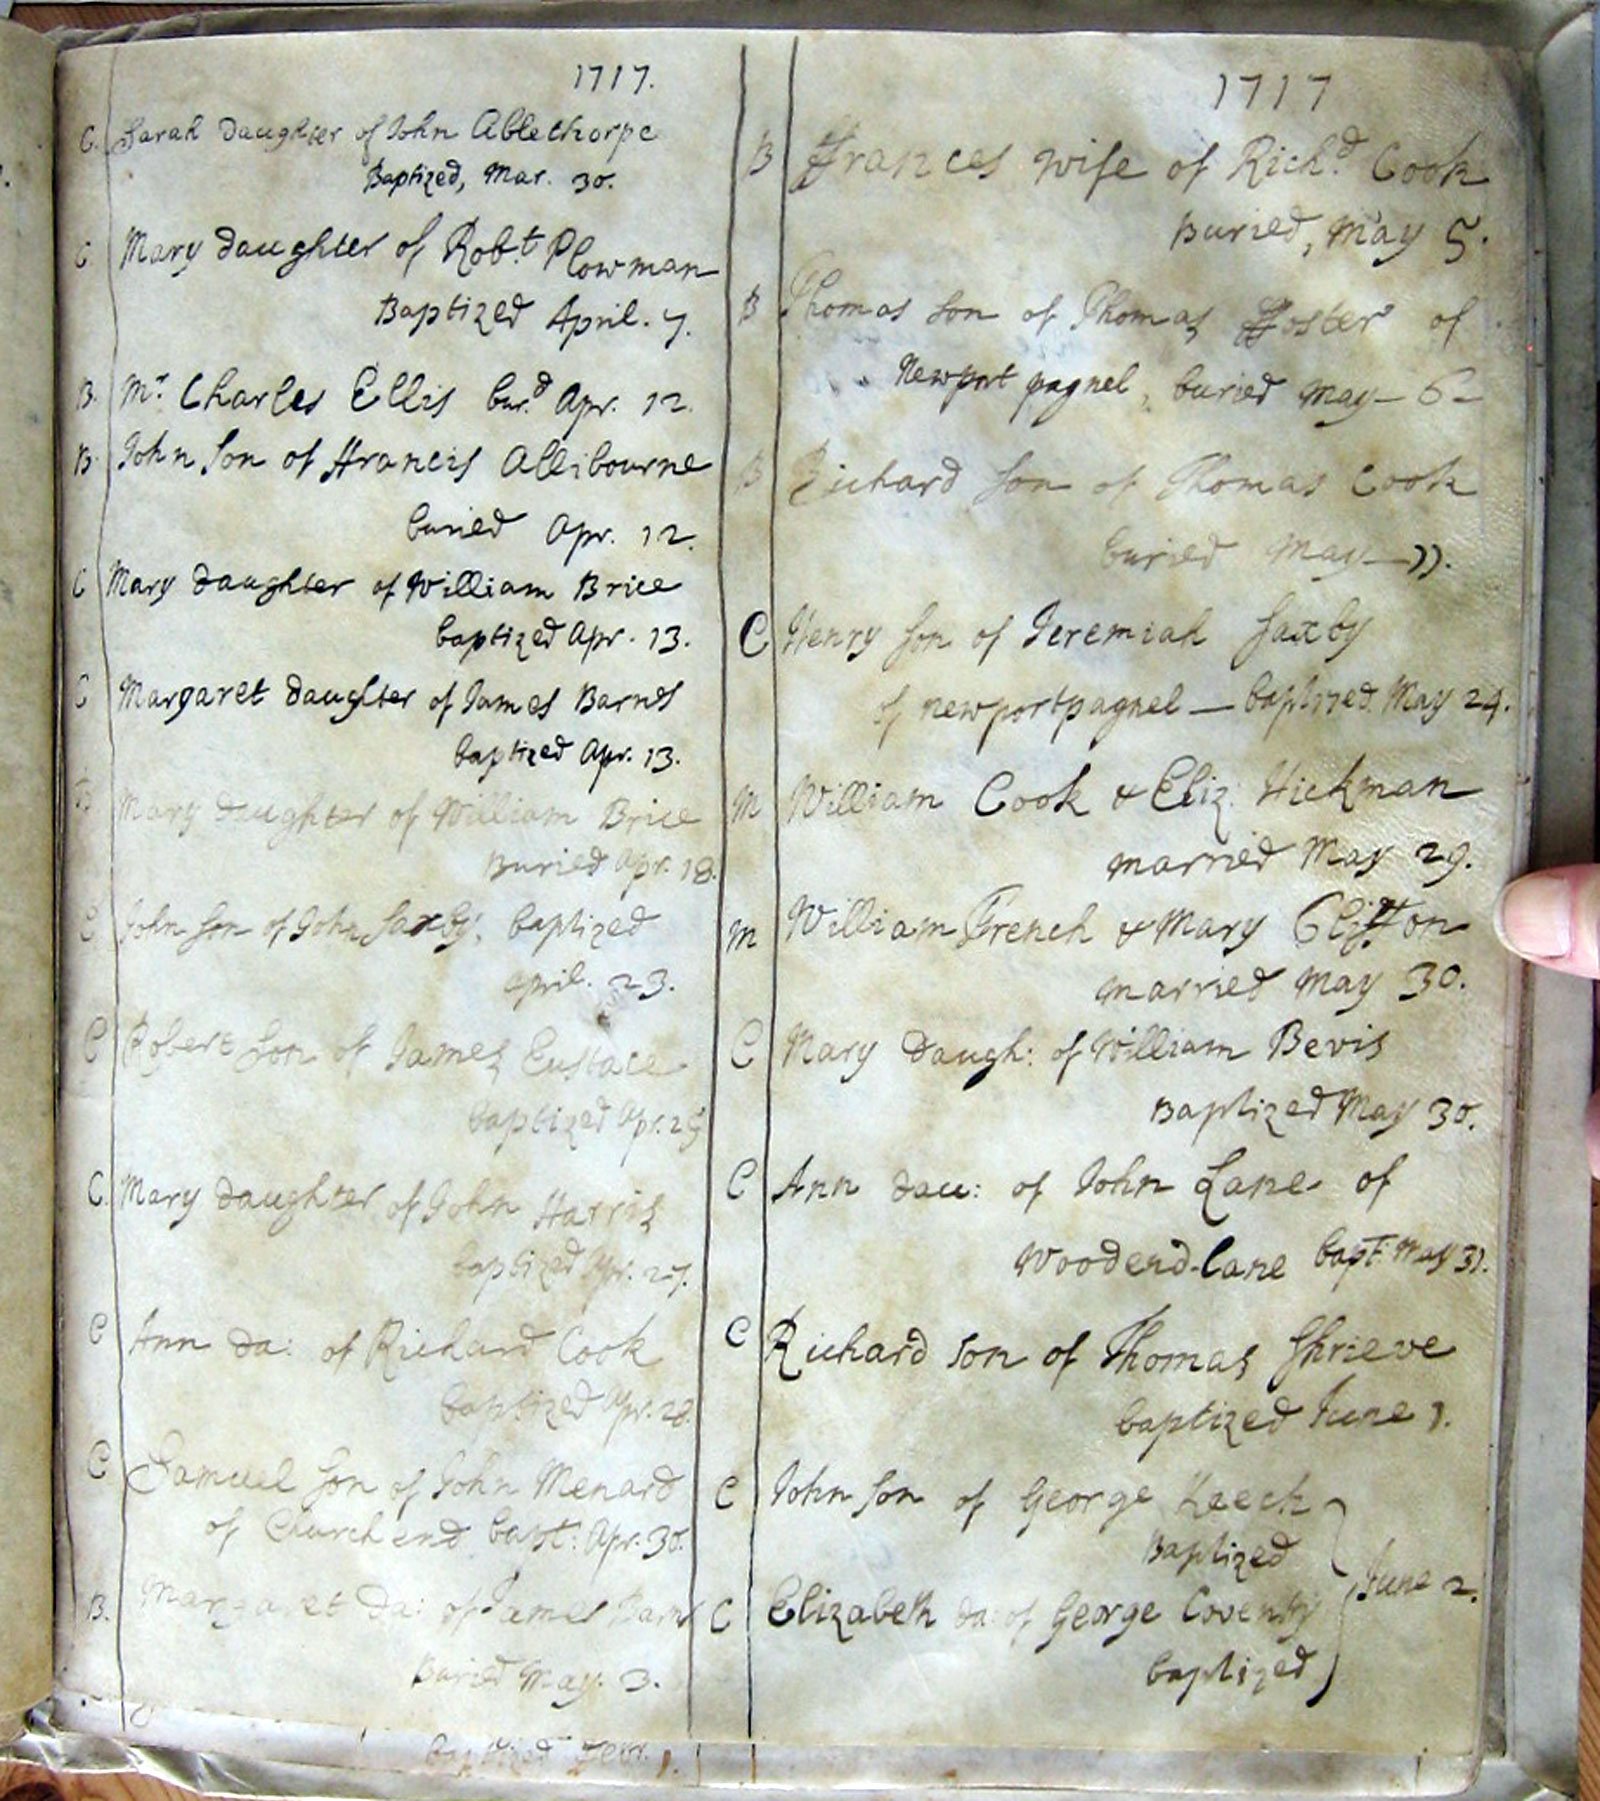 1717.
C. Sarah Daughter of John Ablethorpe
Baptized, Mar. 30.
C. Mary Daughter of Rob.t Plowman
Baptized April. 7.
B. Mr Charles Ellis bur.d Apr. 12.
B. John Son of Francis Allibourne
buried Apr. 12.
C Mary Daughter of William Brice
baptized Apr. 13.
C Margaret Daughter of James Barns
baptized Apr. 13.
B Mary Daughter of William Brice
Buried Apr. 18.
C John Son of John Saxby, baptized
April. 23.
C Robert Son of James Eustace
baptized Apr. 25
C. Mary Daughter of John Harris
baptized Apr. 27.
C Ann Da: of Richard Cook
baptized Apr. 28.
C Samuel Son of John Menard
of Church end bapt: Apr. 30.
B. Margaret Da: of James Barns
Buried May. 3.
baptized
1717
B Frances wife of Rich.d Cook
Buried, May 5.
B Thomas Son of Thomas Foster of
Newport pagnel, buried May - 6 -
B Richard Son of Thomas Cook
buried May - 11.
C Henry Son of Jeremiah Saxby
of newportpagnel - baptized May 24.
M William Cook & Eliz: Hickman
married May 29.
M William French & Mary Clifton
married May 30.
C Mary Daugh: of William Bevis
Baptized May 30.
C Ann dau: of John Lane of
Woodend-lane bapt: May 31.
C Richard Son of Thomas Shrieve
baptized June 1.
C John Son of George Keech
Baptized
June 2.
C Elizabeth da: of George Coventry
baptized